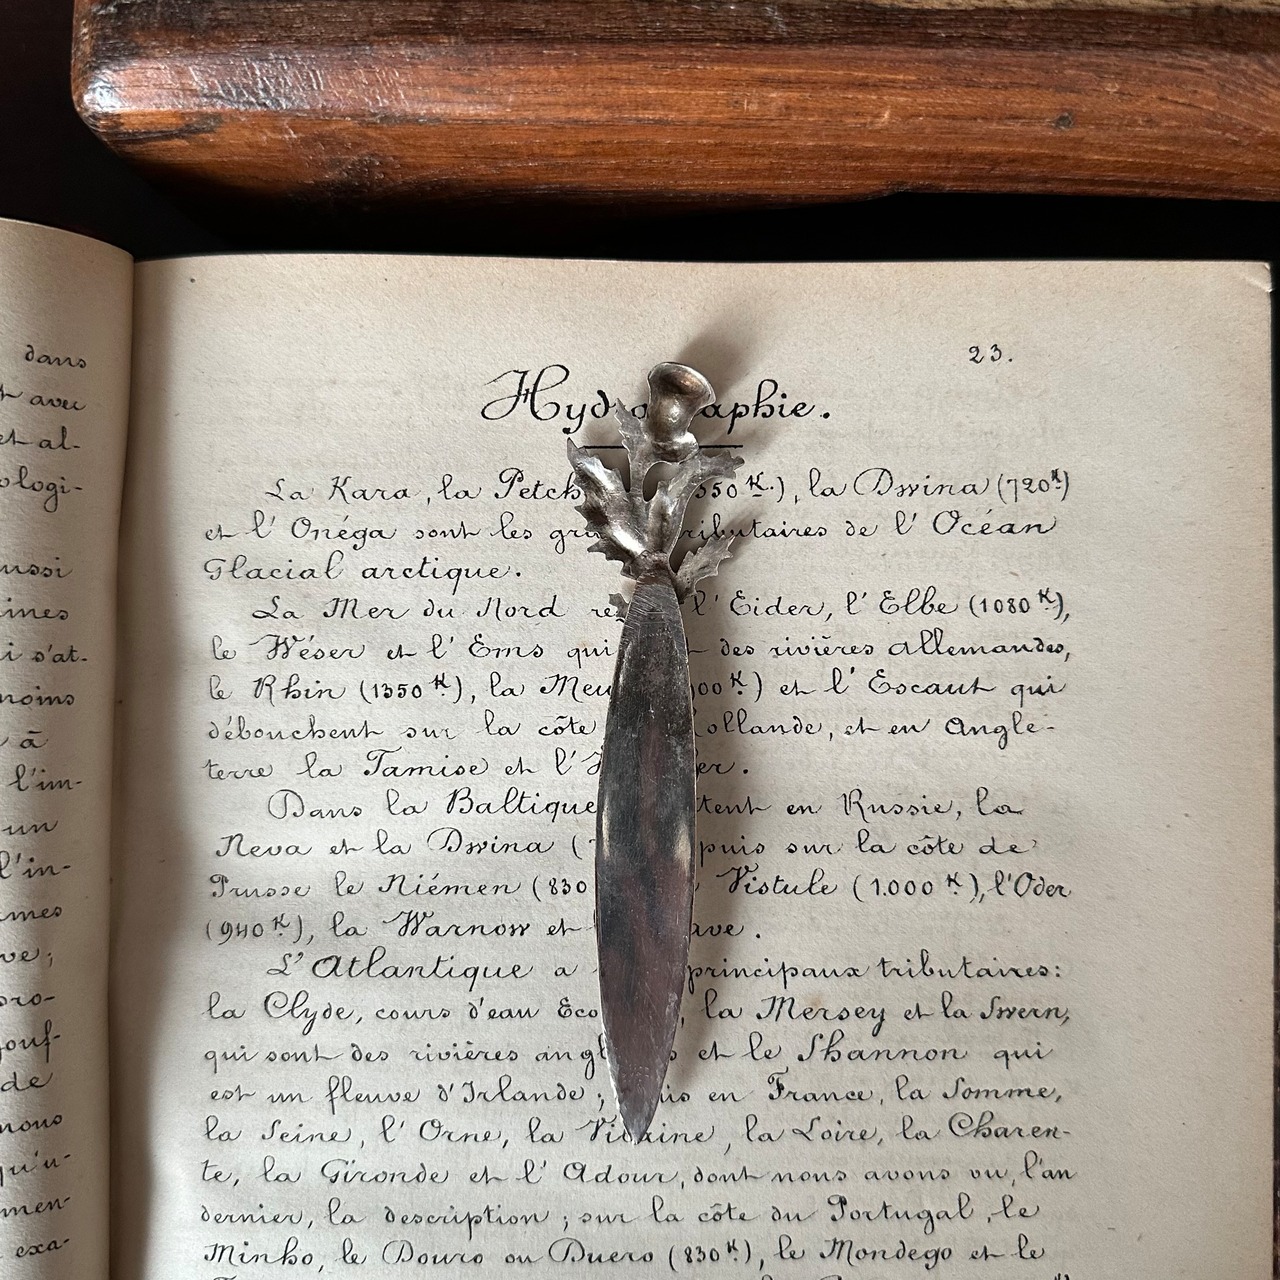 dans
avec
et al-
ologi-
ussi
ines
i s'at-
moins
à
l'im-
un
l'in-
mes
ve;
pro-
gouf-
de
nous
qu'u-
men-
exa-
23.
Hyd o aphie.
La Kara, la Petch 550 K.), la Dwina (720 K)
et l'Onéga sont les gr ributaires de l'Océan
Glacial arctique.
La Mer du Nord re l'Eider, l'Elbe (1080 K.),
le Wéser et l'Ems qui des rivières allemandes,
le Rhin (1350 K.), la Meu 900 K.) et l'Escaut qui
débouchent sur la côte ollande, et en Angle-
terre la Tamise et l'H er.
Dans la Baltique tent en Russie, la
Neva et la Dwina ( puis sur la côte de
Prusse le Niémen (830 Vistule (1.000 K.), l'Oder
(940 K.), la Warnow et ave.
L'Atlantique a principaux tributaires:
la Clyde, cours d'eau Eco , la Mersey et la Swern,
qui sont des rivières angl s et le Shannon qui
est un fleuve d'Irlande; is en France, la Somme,
la Seine, l'Orne, la Vilaine, la Loire, la Charen-
te, la Gironde et l'Adour, dont nous avons vu, l'an
dernier, la description; sur la côte du Portugal, le
Minho, le Douro ou Duero (830 K.), le Mondego et le